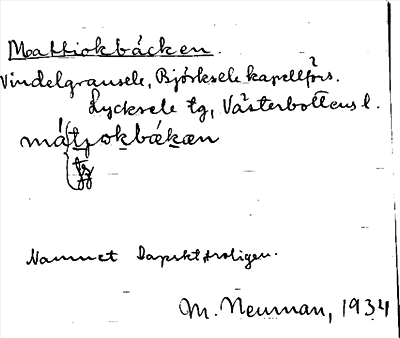 Mattiokbäcken.
Vindelgransele, Björksele kapellförs.
Lycksele tg, Västerbottens l.
Namnet lapskt troligen.
M. Neuman, 1934